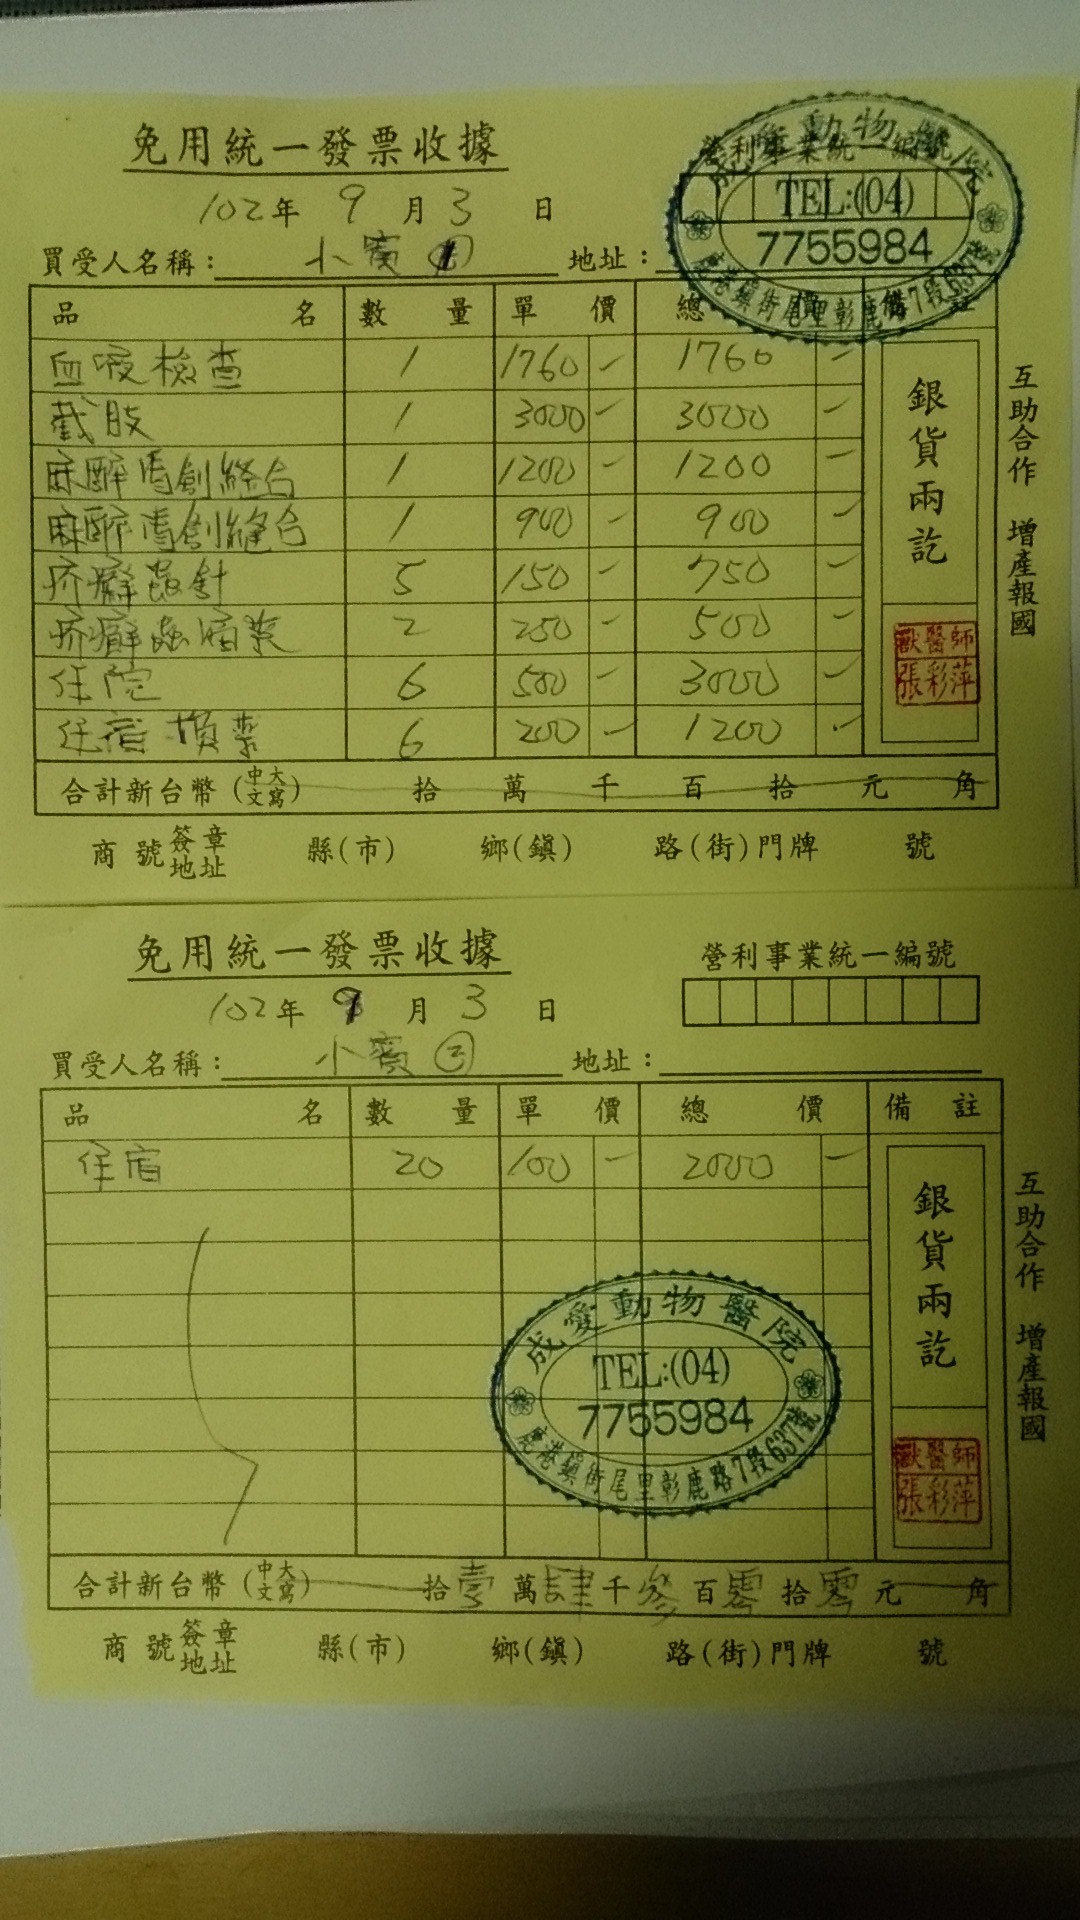 免用統一發票收據
營利事業統一編號
102年 9月 3日
成愛動物醫院
TEL:(04)
7755984
鹿港鎮街尾里彰鹿路7段637號
買受人名稱：小賓① 地址：
品名 數量 單價 總價 備註
血液檢查 1 1760 - 1760 -
截肢 1 3000 - 3000 -
麻醉清創縫合 1 1200 - 1200 -
麻醉清創縫合 1 900 - 900 -
疥癬蟲針 5 150 - 750 -
疥癬蟲滴藥 2 250 - 500 -
住院 6 500 - 3000 -
住宿 換藥 6 200 - 1200 -
銀貨兩訖
獸醫師
張彩萍
互助合作 增產報國
合計新台幣(中文大寫) 拾 萬 千 百 拾 元 角
商號簽章地址 縣(市) 鄉(鎮) 路(街)門牌 號
免用統一發票收據
營利事業統一編號
102年 9月 3日
買受人名稱：小賓② 地址：
品名 數量 單價 總價 備註
住宿 20 100 - 2000 -
成愛動物醫院
TEL:(04)
7755984
鹿港鎮街尾里彰鹿路7段637號
銀貨兩訖
獸醫師
張彩萍
互助合作 增產報國
合計新台幣(中文大寫) 拾壹萬肆千參百零拾零元 角
商號簽章地址 縣(市) 鄉(鎮) 路(街)門牌 號